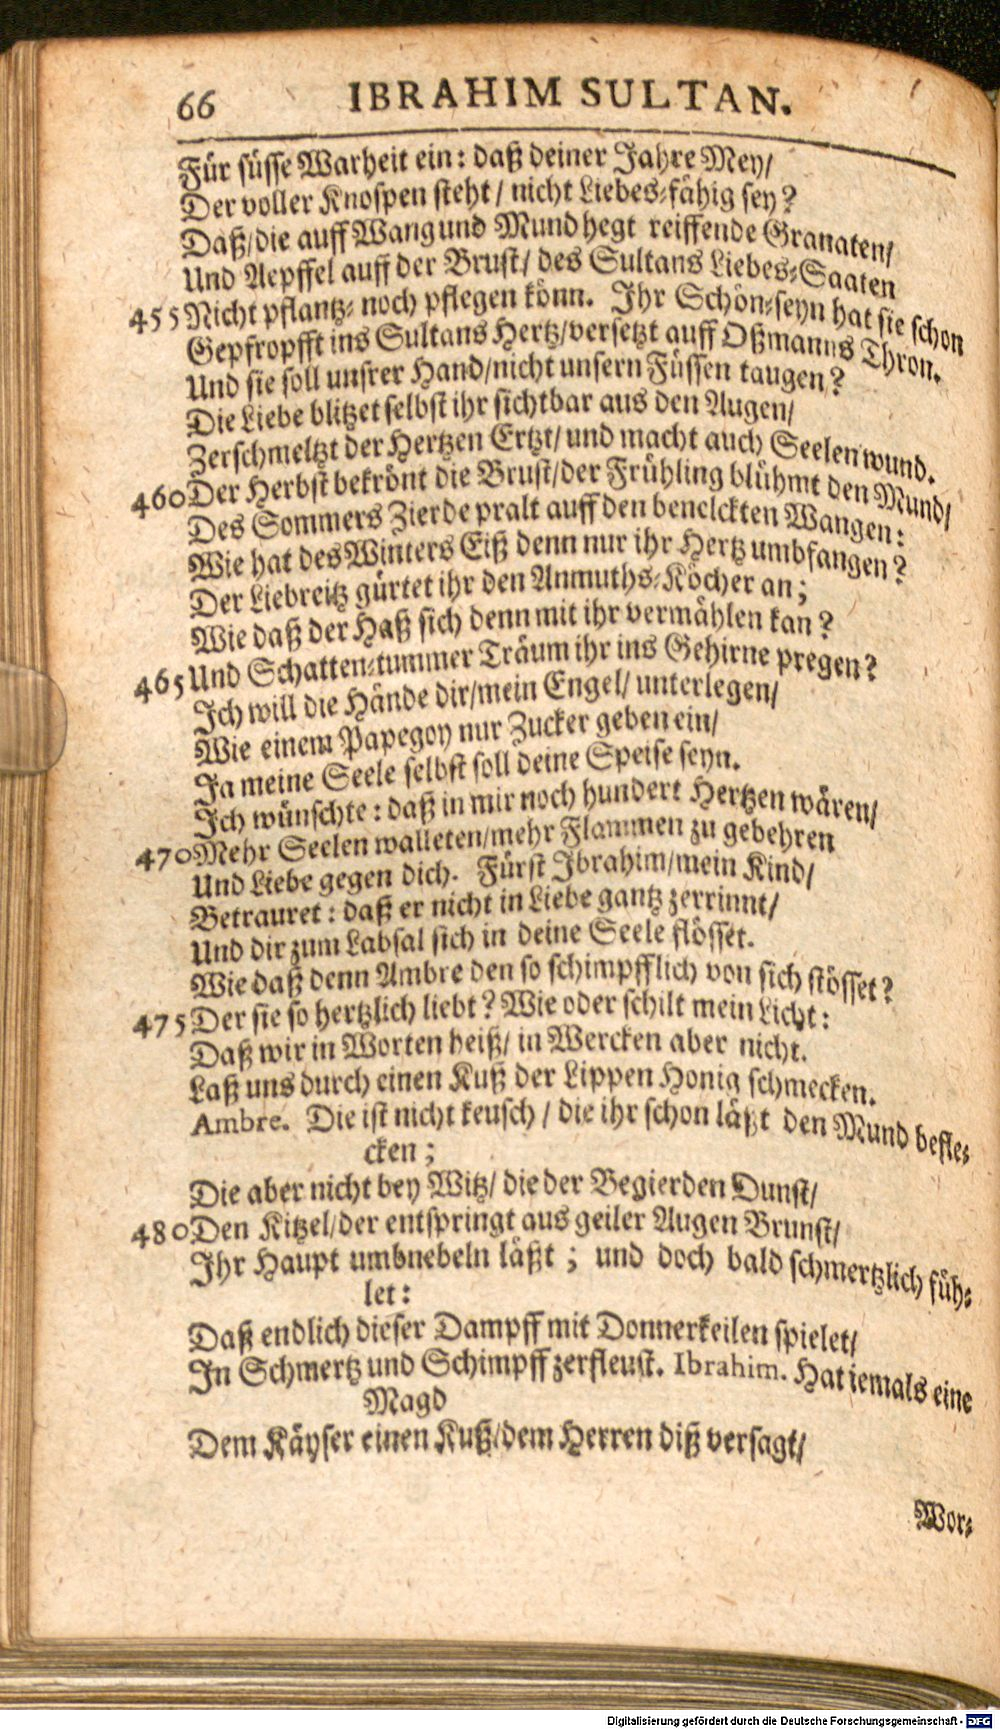 66 IBRAHIM SULTAN.
Für süsse Warheit ein: daß deiner Jahre Mey/
Der voller Knospen steht/ nicht Liebes-fähig sey?
Daß/die auff Wang und Mund hegt reiffende Granaten/
Und Aepffel auff der Brust/ des Sultans Liebes-Saaten
455 Nicht pflantz- noch pflegen könn. Ihr Schön-seyn hat sie schon
Gepfropfft ins Sultans Hertz/versetzt auff Oßmanns Thron.
Und sie soll unsrer Hand/nicht unsern Füssen taugen?
Die Liebe blitzet selbst ihr sichtbar aus den Augen/
Zerschmeltzt der Hertzen Ertzt/ und macht auch Seelen wund.
460 Der Herbst bekrönt die Brust/der Frühling blühmt den Mund/
Des Sommers Zierde pralt auff den benelckten Wangen:
Wie hat des Winters Eiß denn nur ihr Hertz umbfangen?
Der Liebreitz gürtet ihr den Anmuths-Köcher an;
Wie daß der Haß sich denn mit ihr vermählen kan?
465 Und Schatten-tummer Träum ihr ins Gehirne pregen?
Ich will die Hände dir/mein Engel/ unterlegen/
Wie einem Papegoy nur Zucker geben ein/
Ja meine Seele selbst soll deine Speise seyn.
Ich wünschte: daß in mir noch hundert Hertzen wären/
470 Mehr Seelen walleten/mehr Flammen zu gebehren
Und Liebe gegen dich. Fürst Ibrahim/mein Kind/
Betrauret: daß er nicht in Liebe gantz zerrinnt/
Und dir zum Labsal sich in deine Seele flösset.
Wie daß denn Ambre den so schimpfflich von sich stösset?
475 Der sie so hertzlich liebt? Wie oder schilt mein Licht:
Daß wir in Worten heiß/ in Wercken aber nicht.
Laß uns durch einen Kuß der Lippen Honig schmecken.
Ambre. Die ist nicht keusch/ die ihr schon läßt den Mund befle-
cken;
Die aber nicht bey Witz/ die der Begierden Dunst/
480 Den Kitzel/der entspringt aus geiler Augen Brunst/
Ihr Haupt umbnebeln läßt; und doch bald schmertzlich füh-
let:
Daß endlich dieser Dampff mit Donnerkeilen spielet/
In Schmertz und Schimpff zerfleust. Ibrahim. Hat iemals eine
Magd
Dem Käyser einen Kuß/dem Herren diß versagt/
Wor-
Digitalisierung gefördert durch die Deutsche Forschungsgemeinschaft - DFG